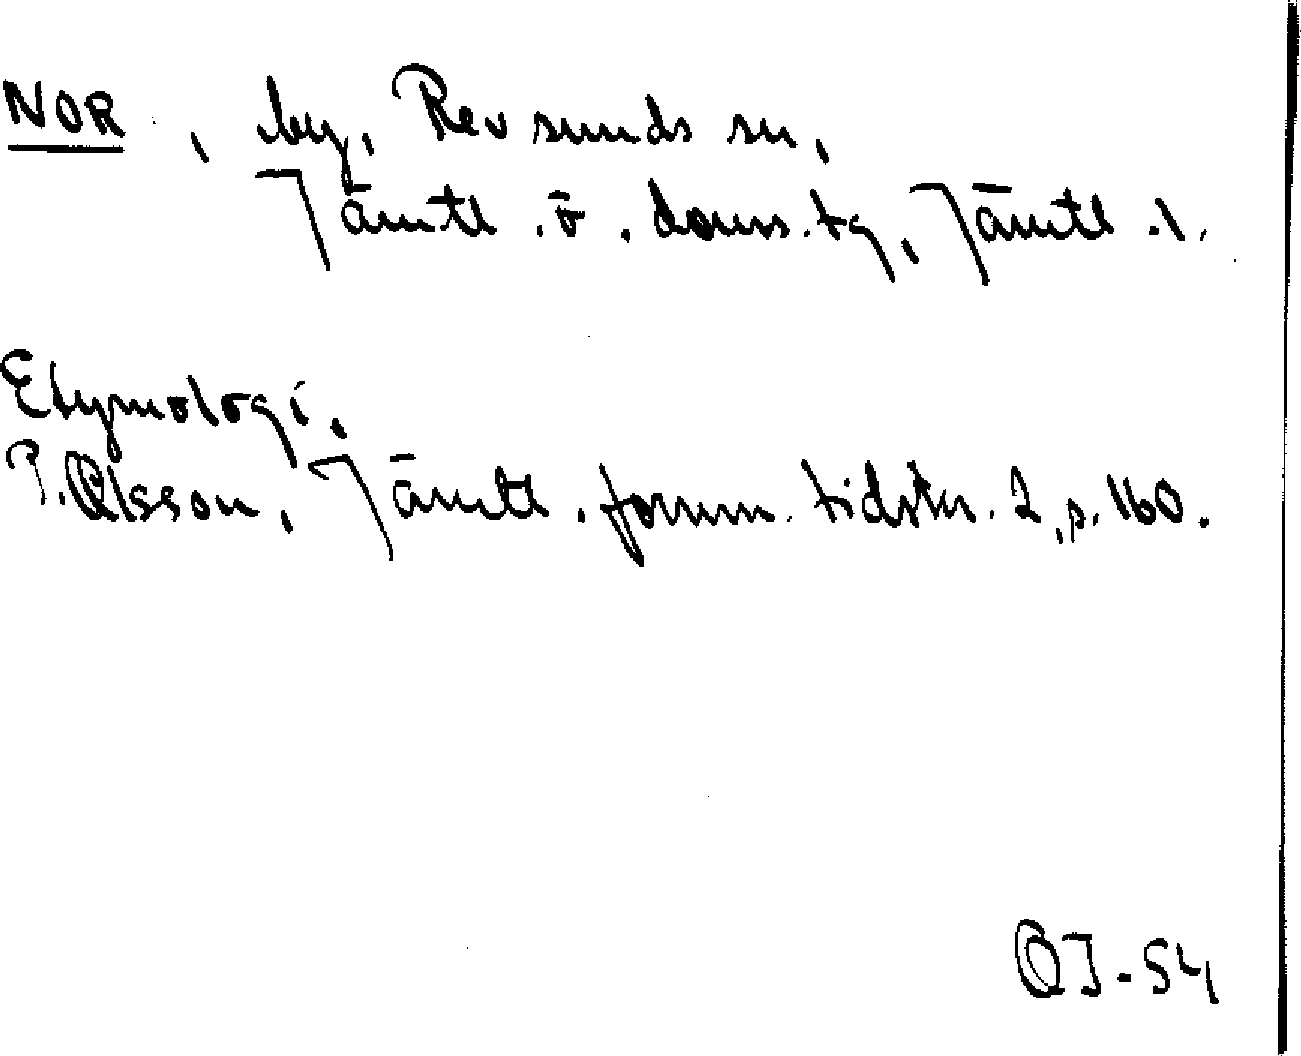 NOR, by, Revsunds sn,
Jämtl. ö. doms.tg, Jämtl. l.
Etymologi.
P. Olsson, Jämtl. fornm. tidskr. 2, s. 160.
OJ-54